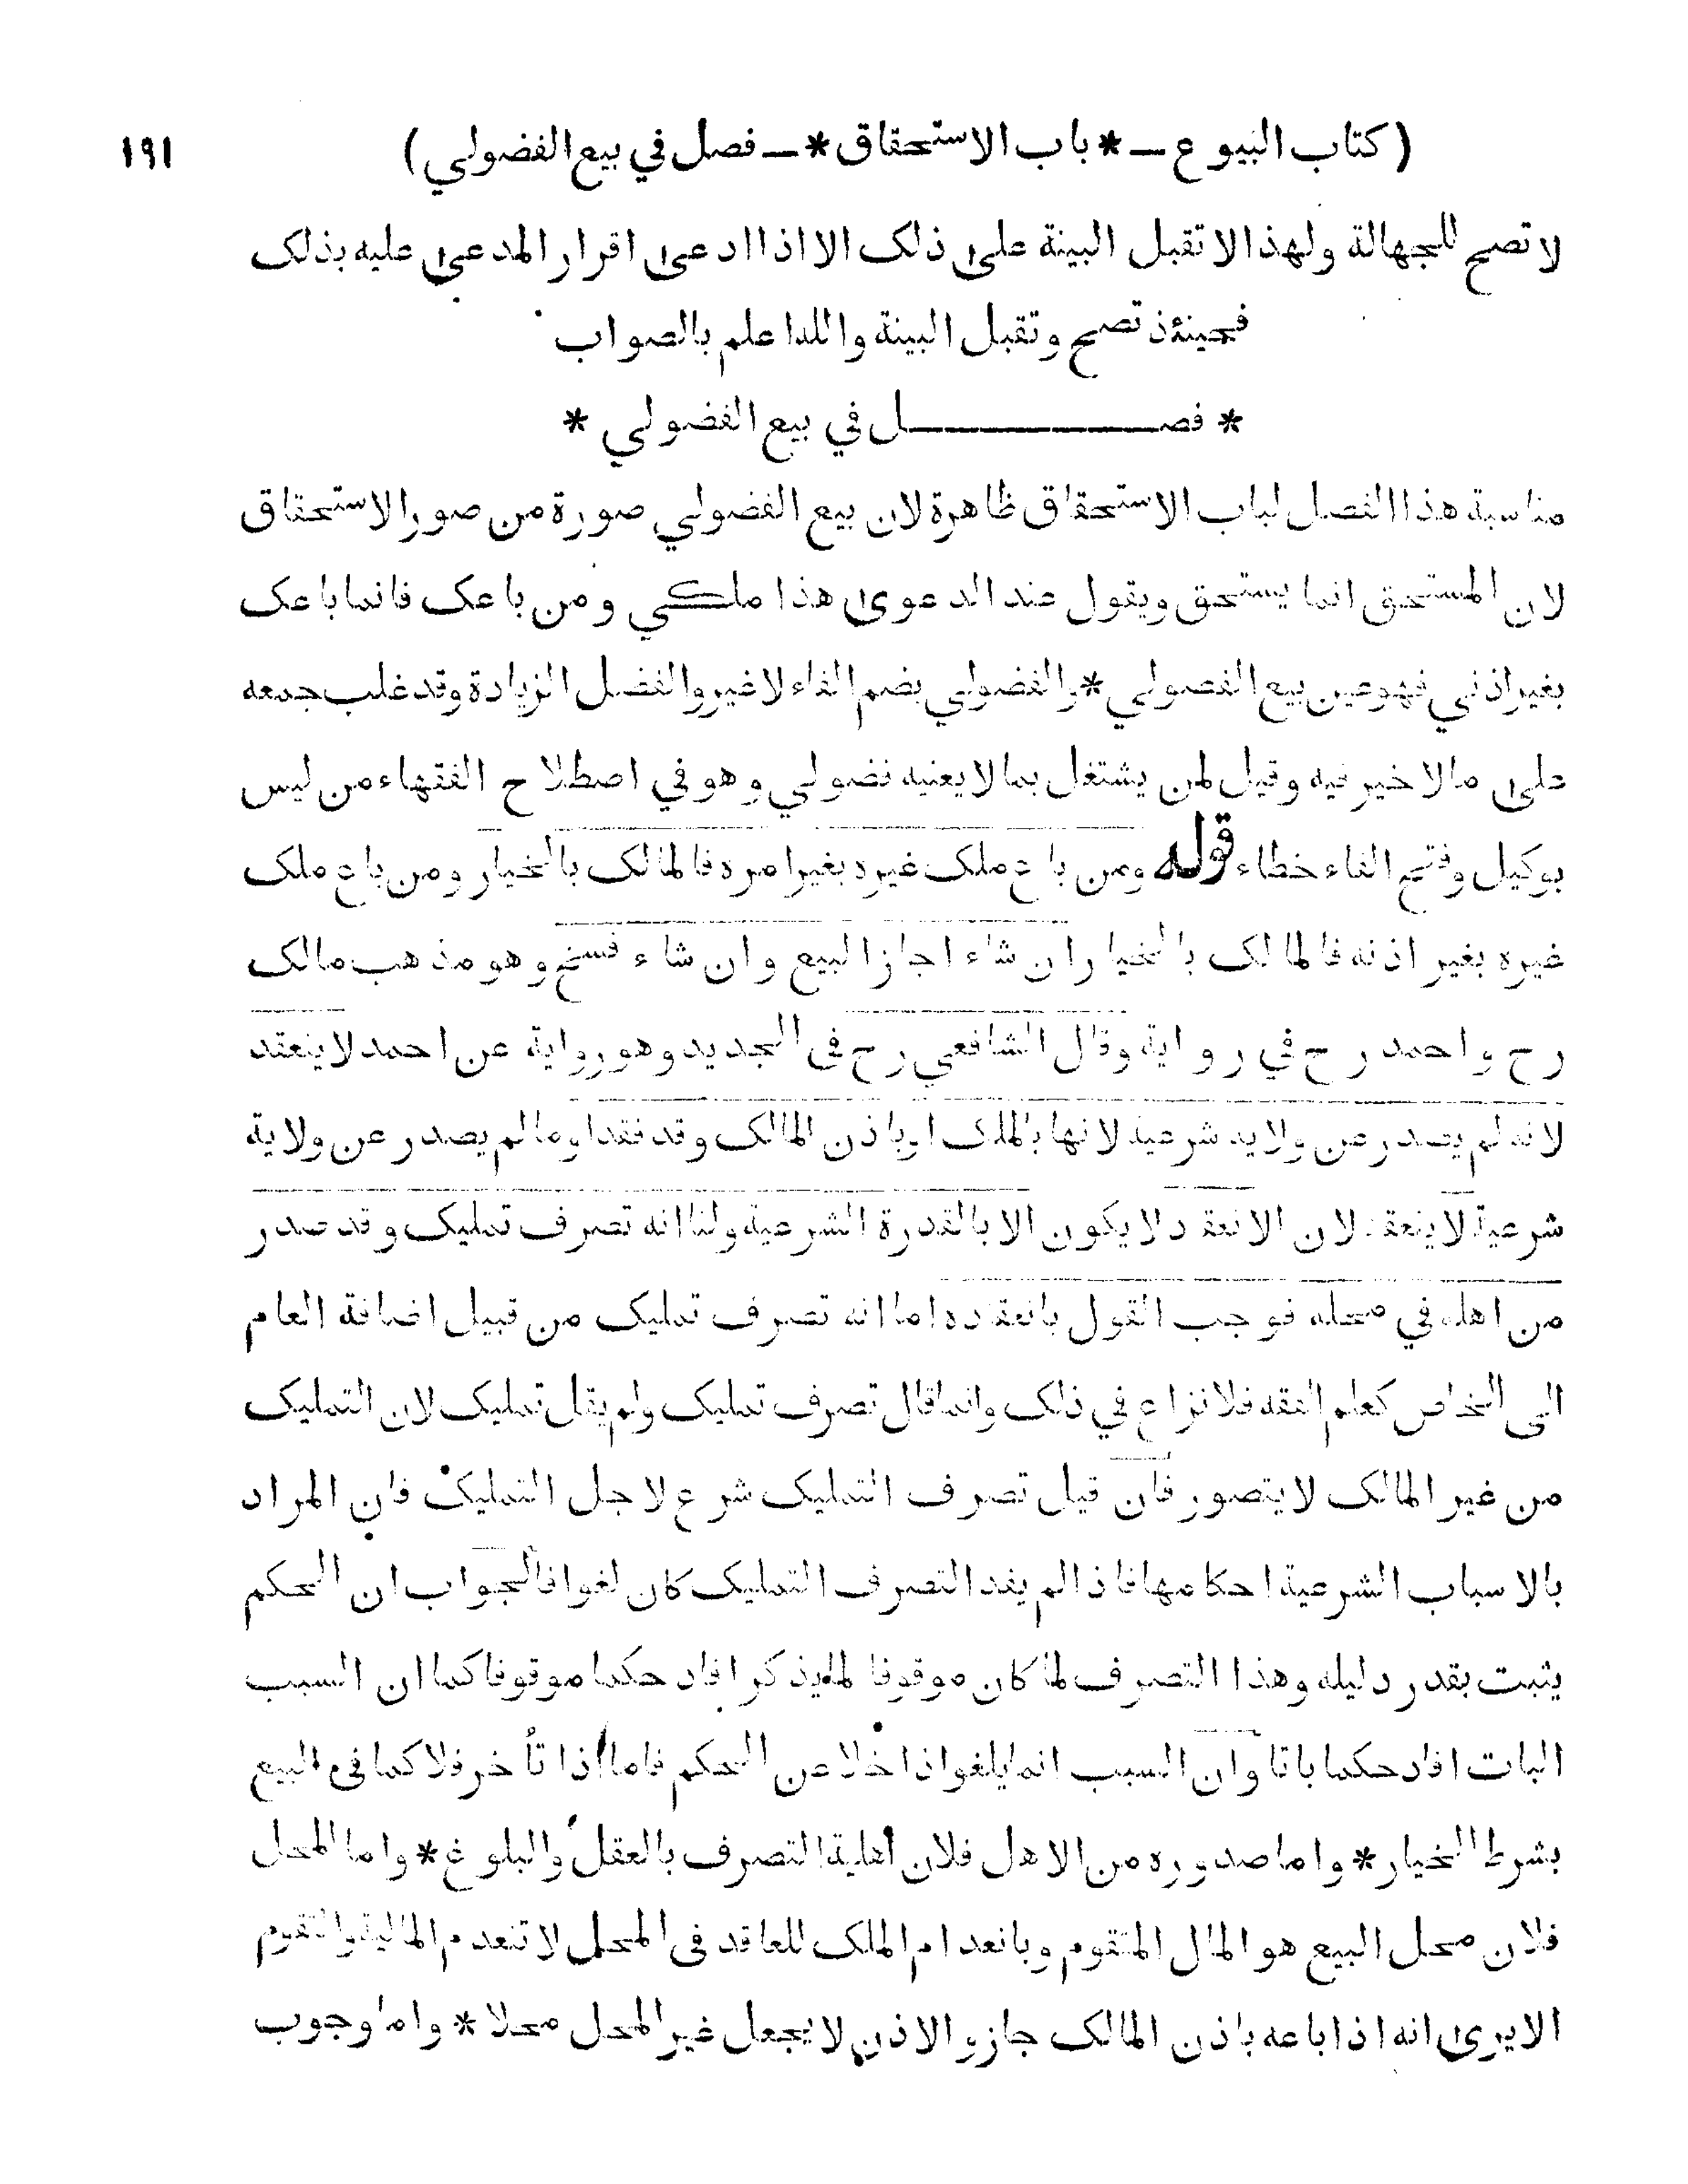 ( كتاب البيوع ــ * باب الاستحقاق * ــ فصل في بيع الفضولي ) ١٩١
لا تصح للجهالة ولهذا لا تقبل البينة على ذلك الا اذا ادعى اقرار المدعى عليه بذلك
فحينئذ تصح وتقبل البينة والله اعلم بالصواب
* فصــــــــل في بيع الفضولي *
مناسبة هذا الفصل لباب الاستحقاق ظاهرة لان بيع الفضولي صورة من صور الاستحقاق
لان المستحق انما يستحق ويقول عند الدعوى هذا ملكي ومن باعك فانما باعك
بغير اذني فهو عين بيع الفضولي * والفضولي بضم الفاء لا غير والفضل الزيادة وقد غلب جمعه
على ما لا خير فيه وقيل لمن يشتغل بما لا يعنيه فضولي وهو في اصطلاح الفقهاء من ليس
بوكيل وفتح الفاء خطاء قوله ومن باع ملك غيره بغير امره فالمالك بالخيار ومن باع ملك
غيره بغير اذنه فالمالك بالخيار ان شاء اجاز البيع وان شاء فسخ وهو مذهب مالك
رح واحمد رح في رواية وقال الشافعي رح في الجديد وهو رواية عن احمد لا ينعقد
لانه لم يصدر عن ولاية شرعية لانها بالملك او باذن المالك وقد فقدا وما لم يصدر عن ولاية
شرعية لا ينعقد لان الانعقاد لا يكون الا بالقدرة الشرعية ولنا انه تصرف تمليك وقد صدر
من اهله في محله فوجب القول بانعقاده اما انه تصرف تمليك من قبيل اضافة العام
الى الخاص كعلم الفقه فلا نزاع في ذلك وانما قال تصرف تمليك ولم يقل تمليك لان التمليك
من غير المالك لا يتصور فان قيل تصرف التمليك شرع لاجل التمليك فان المراد
بالاسباب الشرعية احكامها فاذا لم يفد التصرف التمليك كان لغوا فالجواب ان الحكم
يثبت بقدر دليله وهذا التصرف لما كان موقوفا لما يذكر افاد حكما موقوفا كما ان السبب
البات افاد حكما باتا وان السبب انما يلغو اذا خلا عن الحكم فاما اذا تأخر فلا كما في البيع
بشرط الخيار * واما صدوره من الاهل فلان أهلية التصرف بالعقل والبلوغ * واما المحل
فلان محل البيع هو المال المتقوم وبانعدام الملك للعاقد في المحل لا تنعدم المالية والتقوم
الا يرى انه اذا باعه باذن المالك جاز والاذن لا يجعل غير المحل محلا * واما وجوب